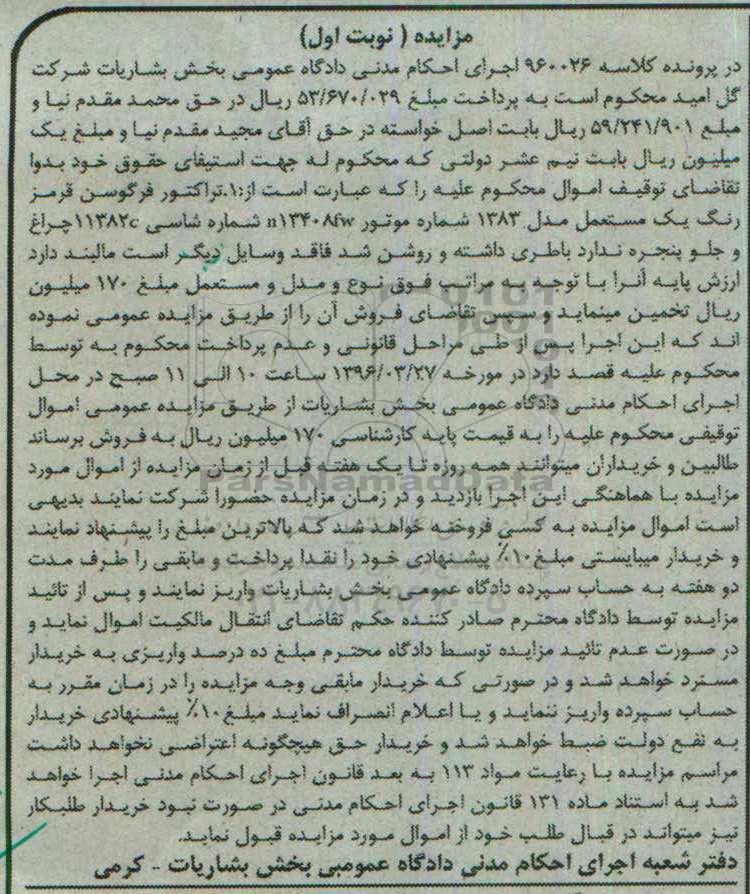 مزایده ( نوبت اول)
در پرونده کلاسه ۹۶۰۰۲۶ اجرای احکام مدنی دادگاه عمومی بخش بشاریات شرکت
گل امید محکوم است به پرداخت مبلغ ۵۳/۶۷۰/۰۲۹ ریال در حق محمد مقدم نیا و
مبلغ ۵۹/۲۴۱/۹۰۱ ریال بابت اصل خواسته در حق آقای مجید مقدم نیا و مبلغ یک
میلیون ریال بابت نیم عشر دولتی که محکوم له جهت استیفای حقوق خود بدوا
تقاضای توقیف اموال محکوم علیه را که عبارت است از:۱.تراکتور فرگوسن قرمز
رنگ یک مستعمل مدل ۱۳۸۳ شماره موتور n۱۳۴۰۸fw شماره شاسی ۱۱۳۸۲c چراغ
و جلو پنجره ندارد باطری داشته و روشن شد فاقد وسایل دیگر است مالبند دارد
ارزش پایه آنرا با توجه به مراتب فوق نوع و مدل و مستعمل مبلغ ۱۷۰ میلیون
ریال تخمین مینماید و سپس تقاضای فروش آن را از طریق مزایده عمومی نموده
اند که این اجرا پس از طی مراحل قانونی و عدم پرداخت محکوم به توسط
محکوم علیه قصد دارد در مورخه ۱۳۹۶/۰۳/۲۷ ساعت ۱۰ الی ۱۱ صبح در محل
اجرای احکام مدنی دادگاه عمومی بخش بشاریات از طریق مزایده عمومی اموال
توقیفی محکوم علیه را به قیمت پایه کارشناسی ۱۷۰ میلیون ریال به فروش برساند
طالبین و خریداران میتوانند همه روزه تا یک هفته قبل از زمان مزایده از اموال مورد
مزایده با هماهنگی این اجرا بازدید و در زمان مزایده حضورا شرکت نمایند بدیهی
است اموال مزایده به کسی فروخته خواهد شد که بالاترین مبلغ را پیشنهاد نمایند
و خریدار میبایستی مبلغ ۱۰٪ پیشنهادی خود را نقدا پرداخت و مابقی را ظرف مدت
دو هفته به حساب سپرده دادگاه عمومی بخش بشاریات واریز نمایند و پس از تائید
مزایده توسط دادگاه محترم صادر کننده حکم تقاضای انتقال مالکیت اموال نماید و
در صورت عدم تائید مزایده توسط دادگاه محترم مبلغ ده درصد واریزی به خریدار
مسترد خواهد شد و در صورتی که خریدار مابقی وجه مزایده را در زمان مقرر به
حساب سپرده واریز ننماید و یا اعلام انصراف نماید مبلغ ۱۰٪ پیشنهادی خریدار
به نفع دولت ضبط خواهد شد و خریدار حق هیچگونه اعتراضی نخواهد داشت
مراسم مزایده با رعایت مواد ۱۱۳ به بعد قانون اجرای احکام مدنی اجرا خواهد
شد به استناد ماده ۱۳۱ قانون اجرای احکام مدنی در صورت نبود خریدار طلبکار
نیز میتواند در قبال طلب خود از اموال مورد مزایده قبول نماید.
دفتر شعبه اجرای احکام مدنی دادگاه عمومبی بخش بشاریات - کرمی
ParsNamadData